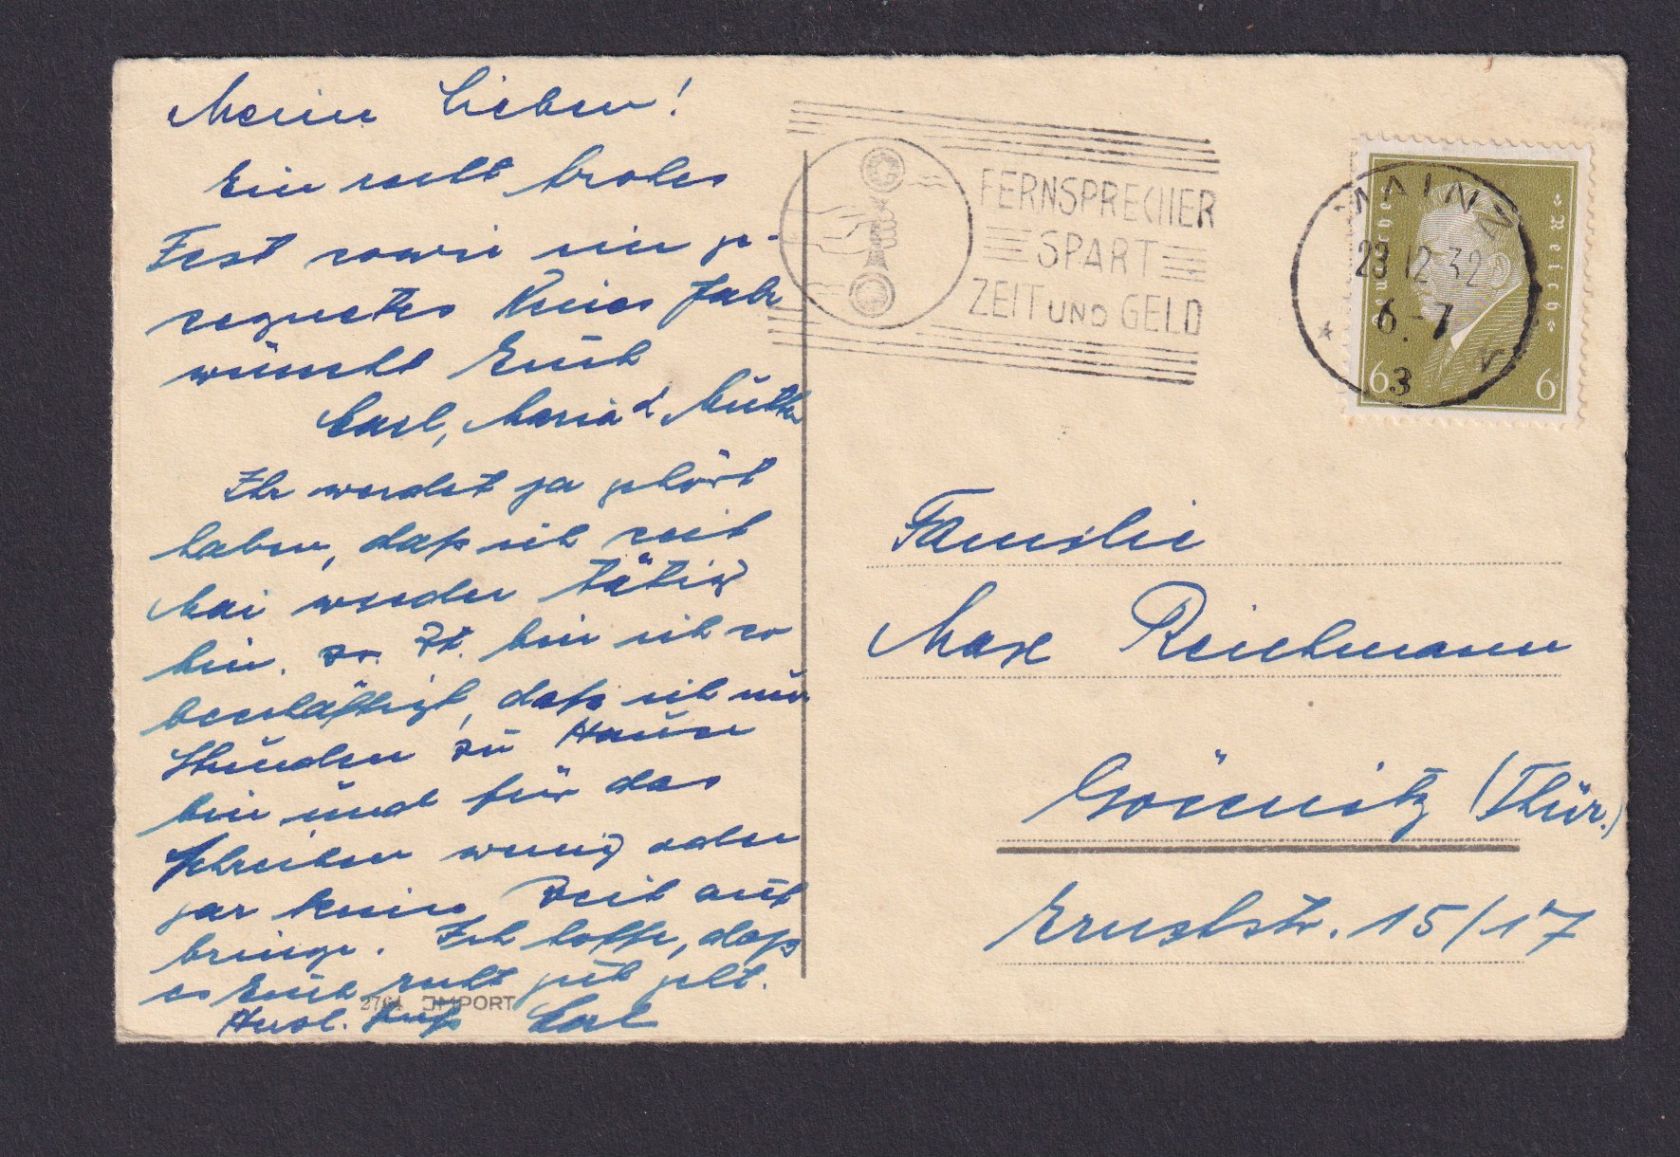 Meine Lieben!
Ein recht frohes
Fest sowie ein ge-
segnetes Neues Jahr
wünscht Euch
Carl, Maria u Mutter
Ihr werdet ja gehört
haben, daß ich seit
Mai wieder tätig
bin. Zr. Zt. bin ich so
beschäftigt, daß ich nur
Stunden zu Hause
bin und für das
Schreiben wenig oder
gar keine Zeit auf
bringe. Ich hoffe, daß
es Euch recht gut geht.
Herzl. Gruß Carl
2764 IMPORT
FERNSPRECHER
SPART
ZEIT UND GELD
MAINZ
23.12.32
6-7
3
Deutsches Reich
6 6
Familie
Max Reichmann
Gössnitz (Thür.)
Ernststr. 15/17